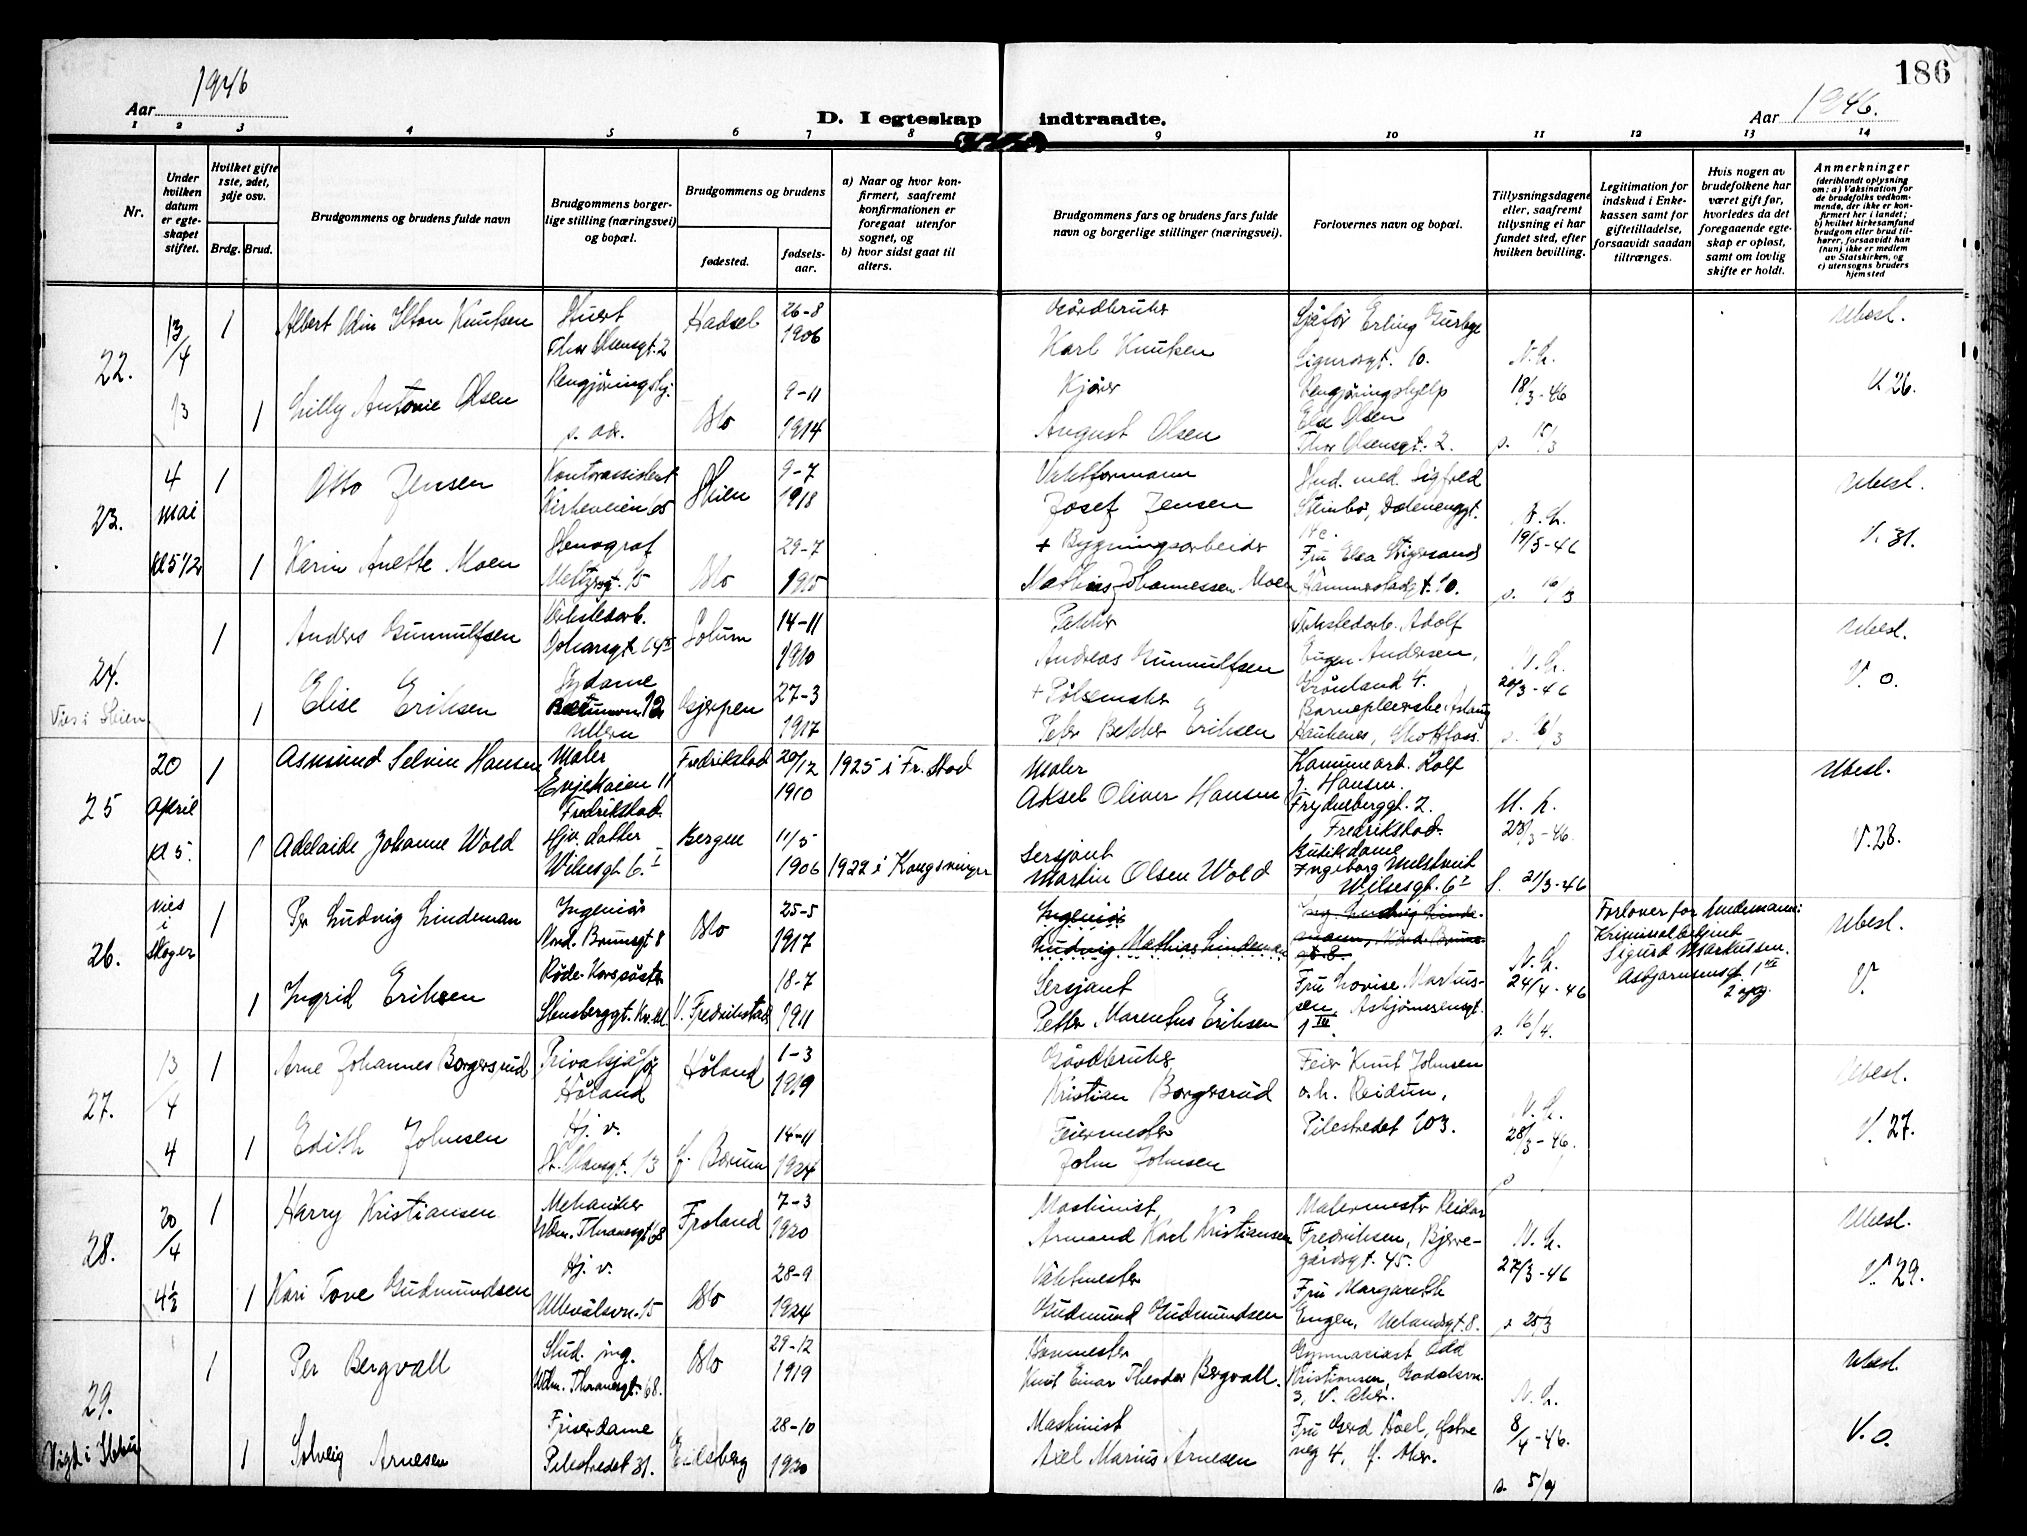 186
Aar 1946
D. I egteskap indtraadte.
Aar 1946.
1 2 3 4 5 6 7 8 9 10 11 12 13 14
Nr.
Under hvilken datum er egteskapet stiftet.
Hvilket gifte 1ste, 2det, 3dje osv.
Brdg. Brud.
Brudgommens og brudens fulde navn
Brudgommens borgerlige stilling (næringsvei) og bopæl.
Brudgommens og brudens
fødested.
fødselsaar.
a) Naar og hvor konfirmert, saafremt konfirmationen er foregaat utenfor sognet, og
b) hvor sidst gaat til alters.
Brudgommens fars og brudens fars fulde navn og borgerlige stillinger (næringsvei).
Forlovernes navn og bopæl.
Tillysningsdagene eller, saafremt tillysning ei har fundet sted, efter hvilken bevilling.
Legitimation for indskud i Enkekassen samt for giftetilladelse, forsaavidt saadan tiltrænges.
Hvis nogen av brudefolkene har været gift før, hvorledes da det foregaaende egteskap er opløst, samt om lovlig skifte er holdt.
Anmerkninger
(deriblandt oplysning om: a) Vaksination for de brudefolks vedkommende, der ikke er konfirmert her i landet; b) hvilket kirkesamfund brudgom eller brud tilhører, forsaavidt han (hun) ikke er medlem av Statskirken, og c) utensogns bruders hjemsted
22. 13/4 1 Albert Odin Ilton Knutsen Stuert Thor Olsensgt. 2 Hadsel 26-8 1906 Gårdbruker Karl Knutsen Sjåfør Erling Sigurdsgt. 10. Ubesl.
13 1 Lilly Antonie Olsen Rengjøringshj. s. adr. Oslo 9-11 1914 Kjører August Olsen Rengjøringshjelp Else Olsen Thor Olsensgt. 2. 18/3-46 s. 15/3 V. 26.
23. 4 mai 1 Otto Jensen Kontorassistent Kirkeveien 65 Skien 9-7 1918 Vaktformann Josef Jensen Stud. med. Sigfred Ubesl.
kl 5 1/2 1 Karin Anette Moen Stenograf Meltzersgt. 15 Oslo 29-7 1915 + Bygningsarbeider Mathias Johannessen Moen Fru Elsa Hammerstadgt. 10. 19/3-46 s. 16/3 V. 31.
24. 1 Anders Gunnulfsen Verkstedarb. Solum 14-11 1910 Pakker Andreas Gunnulfsen Verkstedarb. Adolf Eugen Andersen, Grønland 4. Ubesl.
Vies i Skien 1 Elise Eriksen Sydame Bærumsvn. 12 Ullern Gjerpen 27-3 1917 + Pølsemaker Peter Bekker Eriksen Barnepleierske Aslaug Haukenes, Skotfoss. 20/3-46 s. 16/3 V. 0.
25 20 april kl 5. 1 Asmund Selvin Hansen Maler Evjekaien 11 Fredrikstad. Fredrikstad 20/12 1910 1925 i Fr.stad Maler Aksel Oliver Hansen Kommunearb. Rolf J. Hansen. Frydenberggt. 2. Fredrikstad. Ubesl.
1 Adelaide Johanne Wold Hjv. datter Wilsesgt. 6 I Bergen 11/5 1906 1922 i Kongsvinger Sersjant Martin Olsen Wold Butikdame Ingeborg Wilsesgt. 6 I 28/3-46 s. 21/3-46 V. 28.
26. vies i Skoger 1 Per Ludvig Lindeman Ingeniør Nord. Brunsgt 8 Oslo 25-5 1917 Ingeniør Ludvig Mathias Lindeman Ing. Ludvig Lindemann, Nord. Brunsgt 8. Forlover for Lindemann: Kriminalbetjent Sigurd Markussen. Asbjørnsensgt. 1 VI Ubesl.
1 Ingrid Eriksen Røde-Korssøster Stensberggt. Oslo V. Fredrikstad 18-7 1911 Sersjant Petter Marenfus Eriksen Fru Lovise Markussen, Asbjørnsensgt. 1 24/4-46 s. 16/4. V.
27. 13/4 1 Arne Johannes Borgersrud Privatsjåfør Høland Høland 1-3 1919 Gårdbruker Kristian Borgersrud Feier Knut Johnsen o.h. Reidun, Pilestredet 103. Ubesl.
4 1 Edith Johnsen Hj. v. St. Olavsgt. 13 f. Bærum 14-11 1924 Feiermester John Johnsen 28/3-46. V. 27.
28. 20/4 1 Harry Kristiansen Mekaniker Wdm. Thranesgt 68 Froland 7-3 1920 Maskinist Armand Karl Kristiansen Malermester Reidar Fredriksen, Bjerregårdsgt. 45. Ubesl.
4 1/2 1 Kari Tove Gudmundsen Hj. v. Ullevålsvn. 15 Oslo 28-9 1924 Vaktmester Gudmund Gudmundsen Fru Margarethe Engen, Uelandsgt 8. 27/3-46 s 25/3 V. 29.
29. 1 Per Bergvall Stud. ing. Wdm. Thranesgt. 68. Oslo 29-12 1919 Kanmester Knut Einar Theodor Bergvall. Gymnasiast Odd Kristiansen, Godalsvn. 3, V. Aker. Ubesl.
Vigd i 1 Solveig Arnesen Friserdame Pilestredet 31. Eidsberg 28-10 1920 Maskinist Axel Marius Arnesen Fru Gerd Hoel, Østre veg 4, f. Aker. 8/4-46. s. 5/4 V. 0.